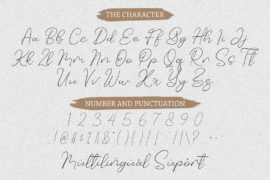 THE CHARACTER
Aa Bb Cc Dd Ee Ff Gg Hh Ii Jj
Kk Ll Mm Nn Oo Pp Qq Rr Ss Tt
Uu Vv Ww Xx Yy Zz
NUMBER AND PUNCTUATION
1 2 3 4 5 6 7 8 9 0
Multilingual Suport